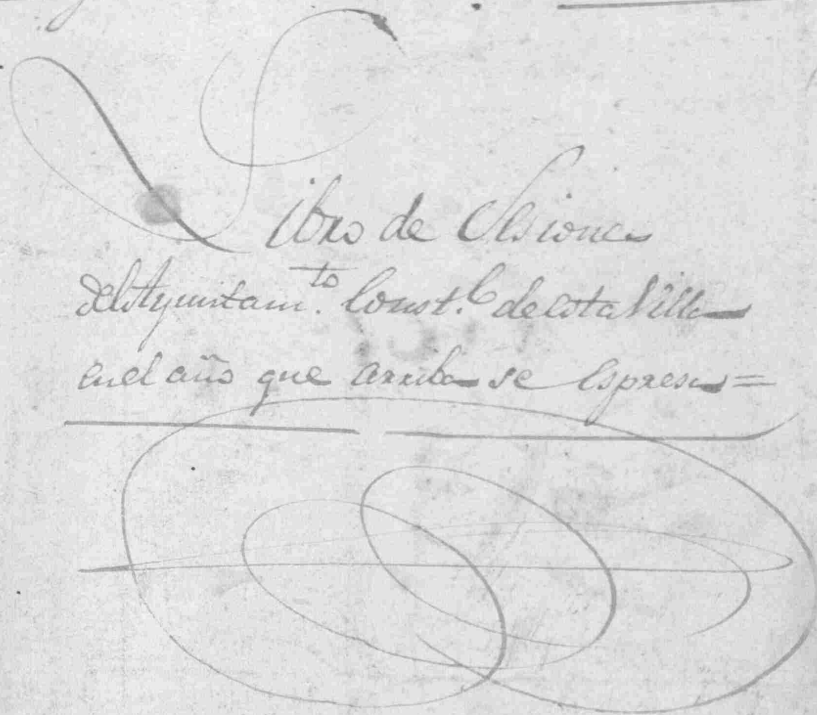 Libro de Sesiones
del Ayuntam.to Const.l de esta Villa
en el año que arriba se espresa=